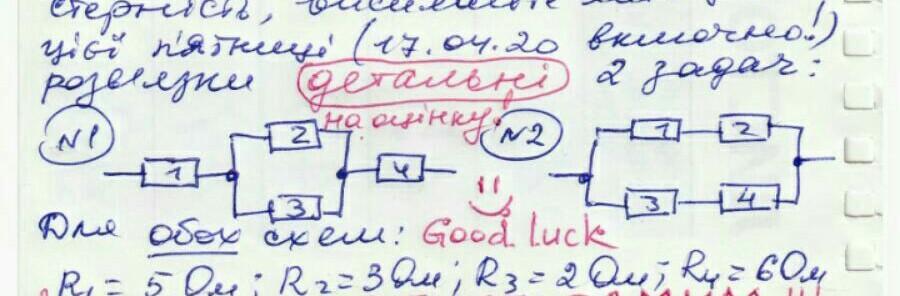 цієї п'ятниці (17.04.20 включно!)
розв'язки детальні 2 задач:
на оцінку!
N1 1 2 3 4 N2 1 2 3 4
Для обох схем: Good luck
R1 = 5 Ом; R2 = 3 Ом; R3 = 2 Ом; R4 = 6 Ом